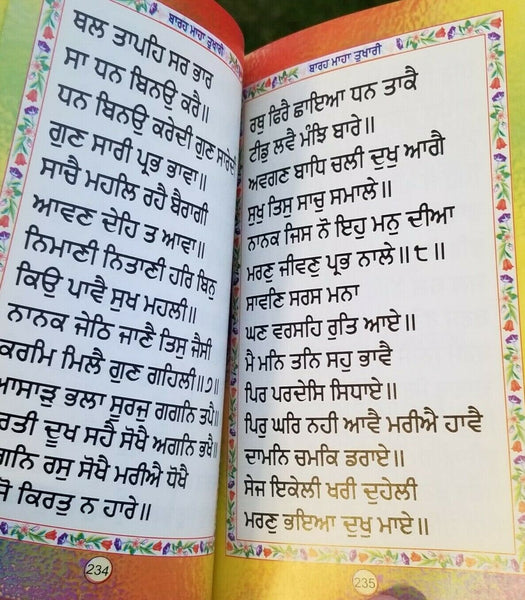 ਬਾਰਹ ਮਾਹਾ ਤੁਖਾਰੀ
ਥਲ ਤਾਪਹਿ ਸਰ ਭਾਰ
ਸਾ ਧਨ ਬਿਨਉ ਕਰੈ॥
ਧਨ ਬਿਨਉ ਕਰੇਦੀ ਗੁਣ ਸਾਰੇਦੀ
ਗੁਣ ਸਾਰੀ ਪ੍ਰਭ ਭਾਵਾ॥
ਸਾਚੈ ਮਹਲਿ ਰਹੈ ਬੈਰਾਗੀ
ਆਵਣ ਦੇਹਿ ਤ ਆਵਾ॥
ਨਿਮਾਣੀ ਨਿਤਾਣੀ ਹਰਿ ਬਿਨੁ
ਕਿਉ ਪਾਵੈ ਸੁਖ ਮਹਲੀ॥
ਨਾਨਕ ਜੇਠਿ ਜਾਣੈ ਤਿਸੁ ਜੈਸੀ
ਕਰਮਿ ਮਿਲੈ ਗੁਣ ਗਹਿਲੀ॥੭॥
ਆਸਾੜੁ ਭਲਾ ਸੂਰਜੁ ਗਗਨਿ ਤਪੈ॥
ਰਤੀ ਦੂਖ ਸਹੈ ਸੋਖੈ ਅਗਨਿ ਭਖੈ॥
ਗਨਿ ਰਸੁ ਸੋਖੈ ਮਰੀਐ ਧੋਖੈ
ਕਿਰਤੁ ਨ ਹਾਰੇ॥
234
ਬਾਰਹ ਮਾਹਾ ਤੁਖਾਰੀ
ਰਥੁ ਫਿਰੈ ਛਾਇਆ ਧਨ ਤਾਕੈ
ਟੀਡੁ ਲਵੈ ਮੰਝਿ ਬਾਰੇ॥
ਅਵਗਣ ਬਾਧਿ ਚਲੀ ਦੁਖੁ ਆਗੈ
ਸੁਖੁ ਤਿਸੁ ਸਾਚੁ ਸਮਾਲੇ॥
ਨਾਨਕ ਜਿਸ ਨੋ ਇਹੁ ਮਨੁ ਦੀਆ
ਮਰਣੁ ਜੀਵਣੁ ਪ੍ਰਭ ਨਾਲੇ॥੮॥
ਸਾਵਣਿ ਸਰਸ ਮਨਾ
ਘਣ ਵਰਸਹਿ ਰੁਤਿ ਆਏ॥
ਮੈ ਮਨਿ ਤਨਿ ਸਹੁ ਭਾਵੈ
ਪਿਰ ਪਰਦੇਸਿ ਸਿਧਾਏ॥
ਪਿਰੁ ਘਰਿ ਨਹੀ ਆਵੈ ਮਰੀਐ ਹਾਵੈ
ਦਾਮਨਿ ਚਮਕਿ ਡਰਾਏ॥
ਸੇਜ ਇਕੇਲੀ ਖਰੀ ਦੁਹੇਲੀ
ਮਰਣੁ ਭਇਆ ਦੁਖੁ ਮਾਏ॥
235